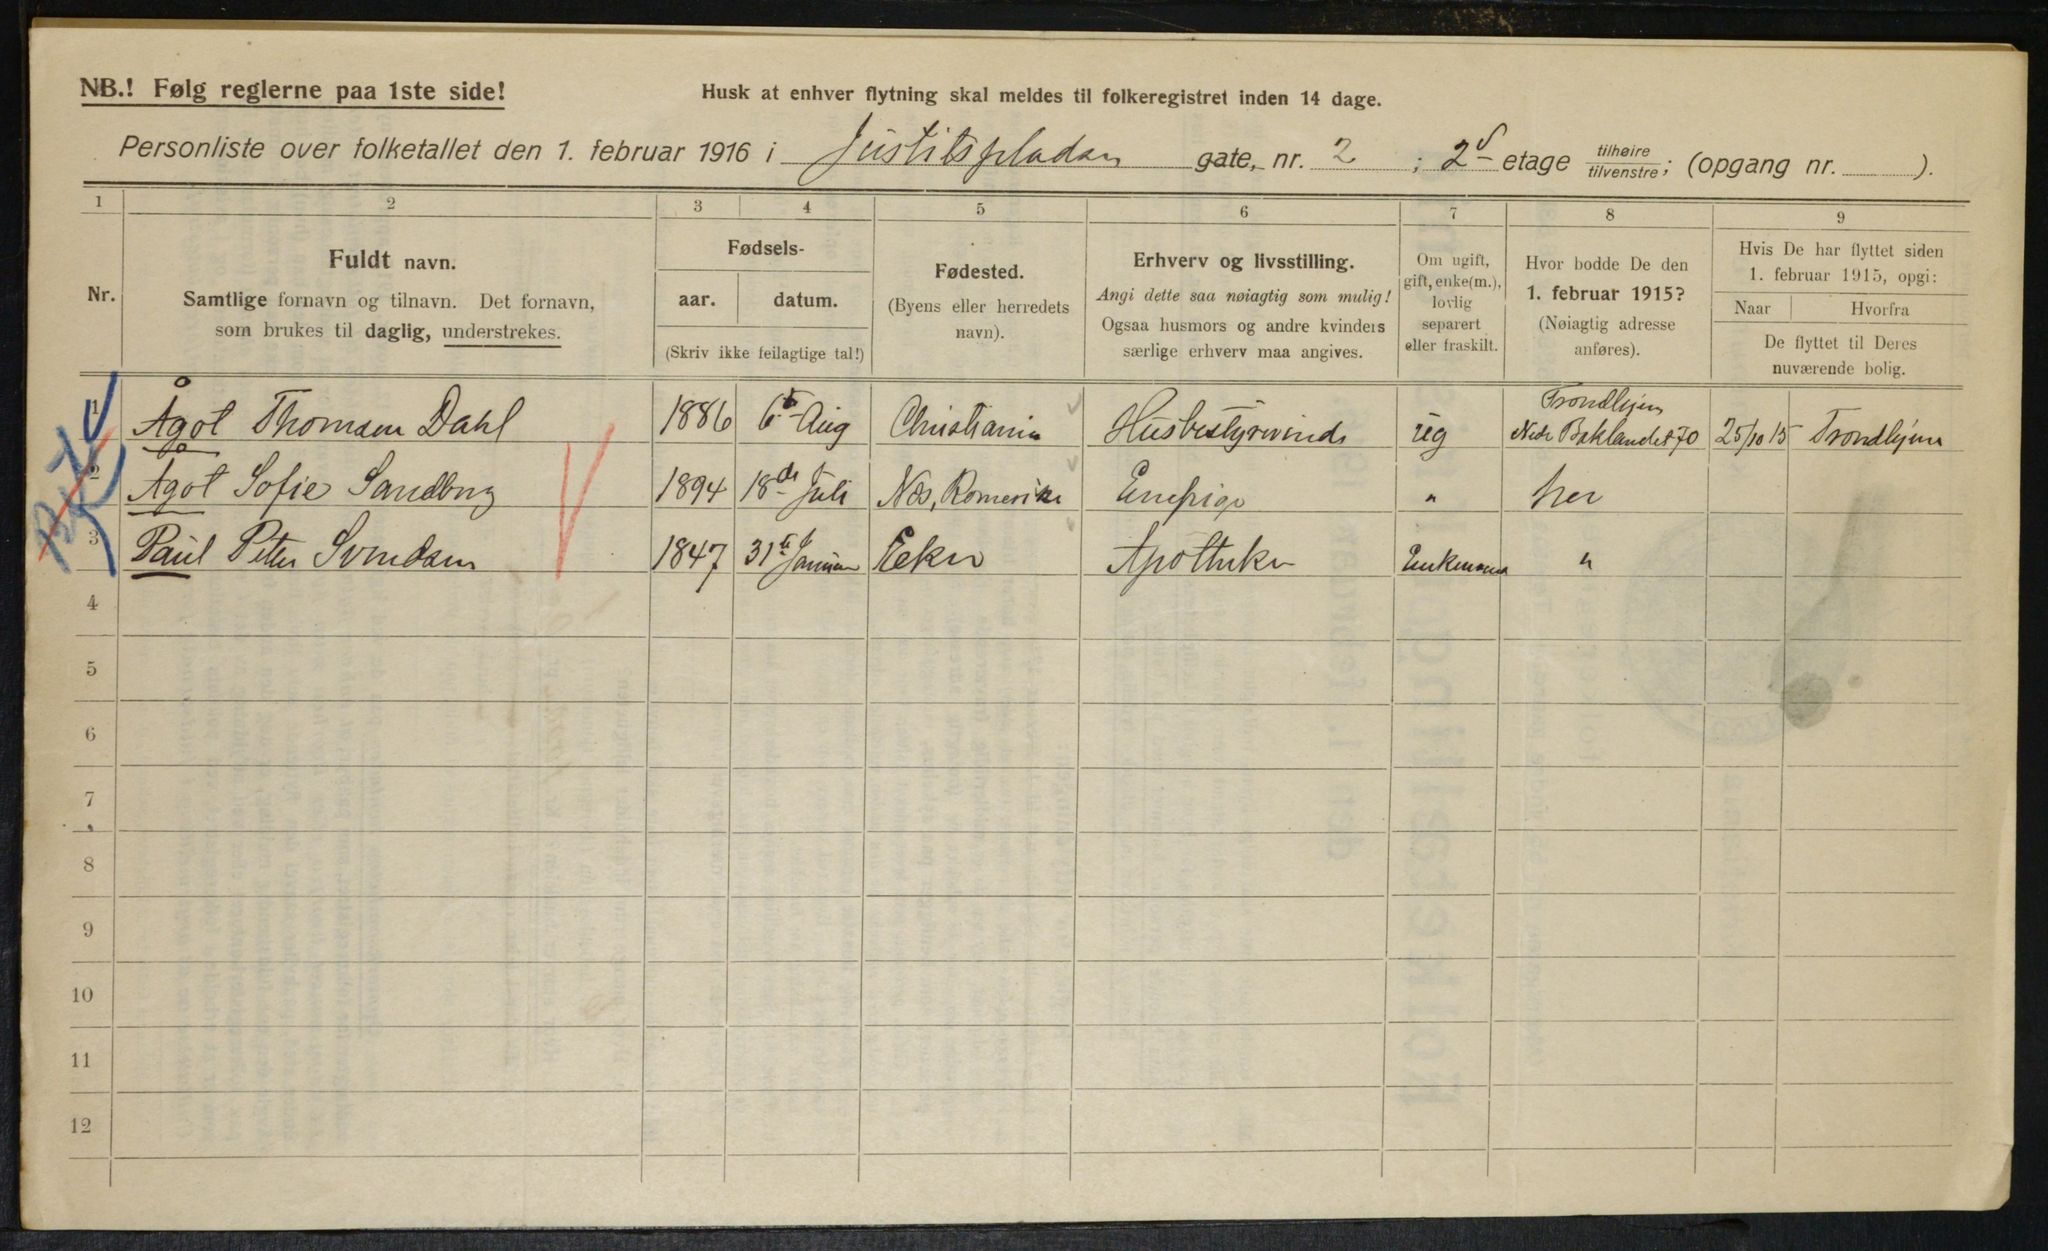 NB.! Følg reglerne paa 1ste side!
Husk at enhver flytning skal meldes til folkeregistret inden 14 dage.
Personliste over folketallet den 1. februar 1916 i Justitspladsen gate, nr. 2 ; 2den etage tilhøire/tilvenstre; (opgang nr. ).
1 2 3 4 5 6 7 8 9
Nr.
Fuldt navn.
Samtlige fornavn og tilnavn. Det fornavn,
som brukes til daglig, understrekes.
Fødsels-
aar. datum.
(Skriv ikke feilagtige tal!)
Fødested.
(Byens eller herredets
navn).
Erhverv og livsstilling.
Angi dette saa nøiagtig som mulig!
Ogsaa husmors og andre kvinders
særlige erhverv maa angives.
Om ugift,
gift, enke(m.),
lovlig
separert
eller fraskilt.
Hvor bodde De den
1. februar 1915?
(Nøiagtig adresse
anføres).
Hvis De har flyttet siden
1. februar 1915, opgi:
Naar Hvorfra
De flyttet til Deres
nuværende bolig.
1 Ågot Thomsen Dahl 1886 6te Aug Christiania Husbestyrerinde ug Trondhjem Nedr Baklandet 70 25/10 15 Trondhjem
2 Ågot Sofie Sandbog 1894 18de Juli Næs, Romerike Enepige " her
3 Paul Peter Svendsen 1847 31te Januar Eeker Apotheker Enkemand "
4
5
6
7
8
9
10
11
12